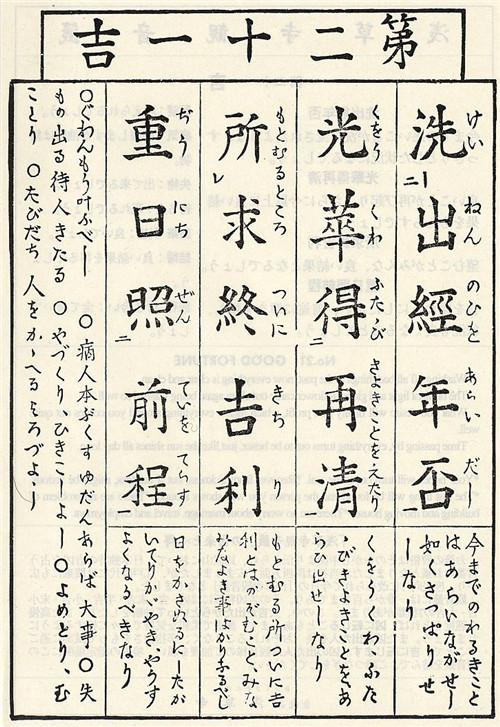 第二十一吉
洗出經年否
けい ねん のひを あらいだ
光華得再清
くわうくわ ふたゝび きよきことをえたり
所求終吉利
もとむるところ ついに きちり
重日照前程
ぢう にち ぜんていをてらす
今までのわるきこと
はあらいながせし
如くさつぱりせ
しなり
くわうくわふた
ゝびきよきことをあ
らひ出せしなり
もとむる所ついに吉
利とはのぞむことみな
みなよき事よかりふるべし
日をかさぬるにしたが
いてりかゞやきやうす
よくなるべきなり
○ぐわんもう叶ふべし ○病人本ぷくすゆだんあらば大事 ○失
もの出る待人きたる ○やづくりひきこしよし ○よめどり、むこ
とり ○たびだち 人をかゝへるよろづよし